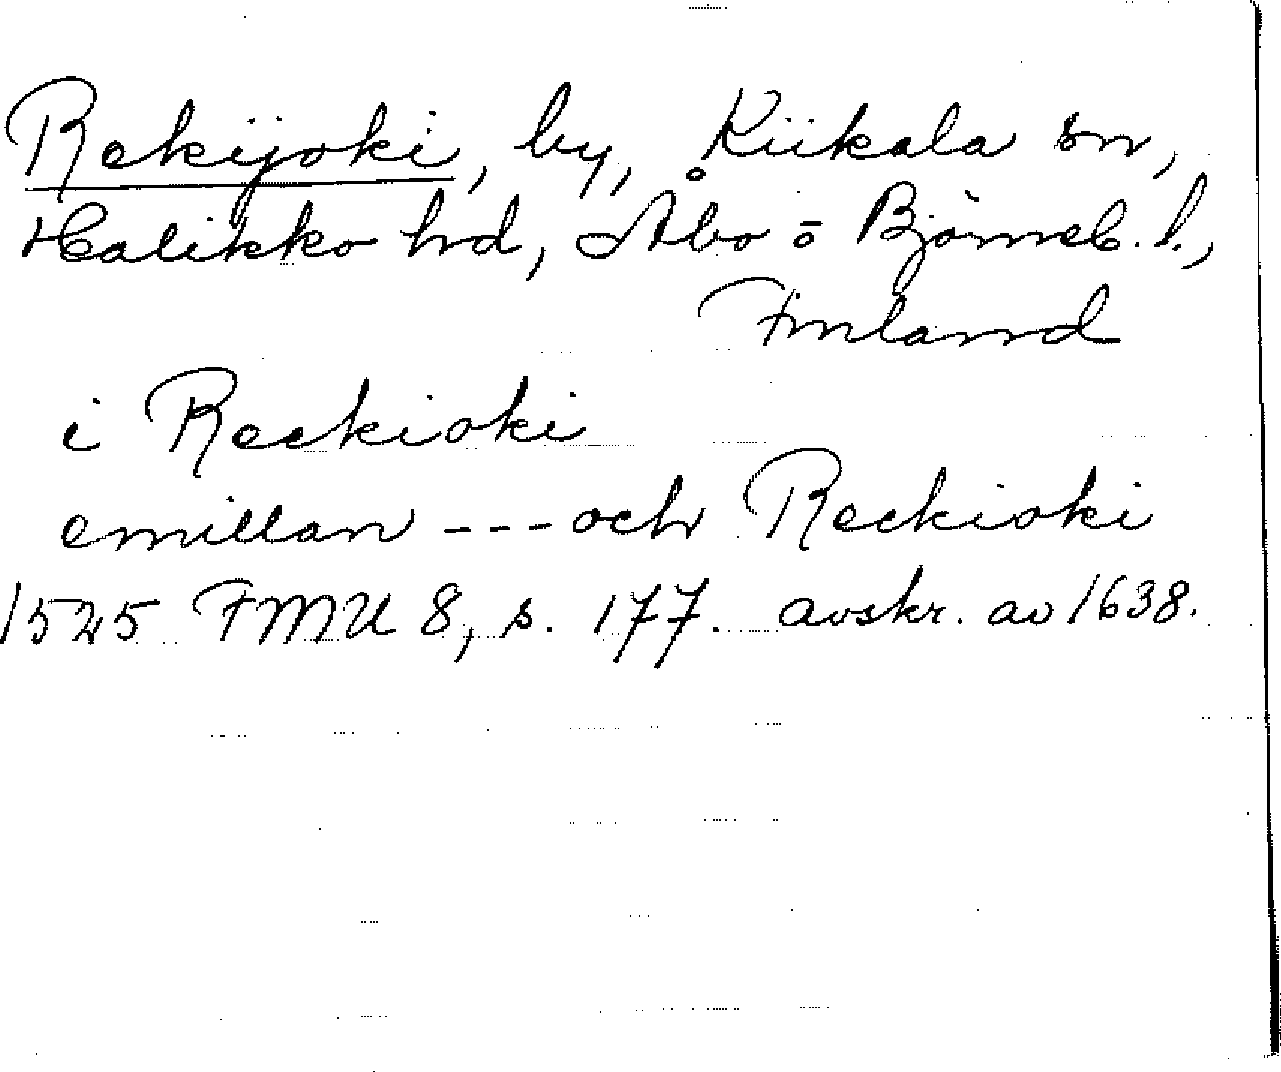 Rekijoki, by, Kiikala sn,
Halikko hd, Åbo o Björneb. l.,
Finland
i Reckioki
emillan --- och Reckioki
1525 FMU 8, s. 177. avskr. av 1638.